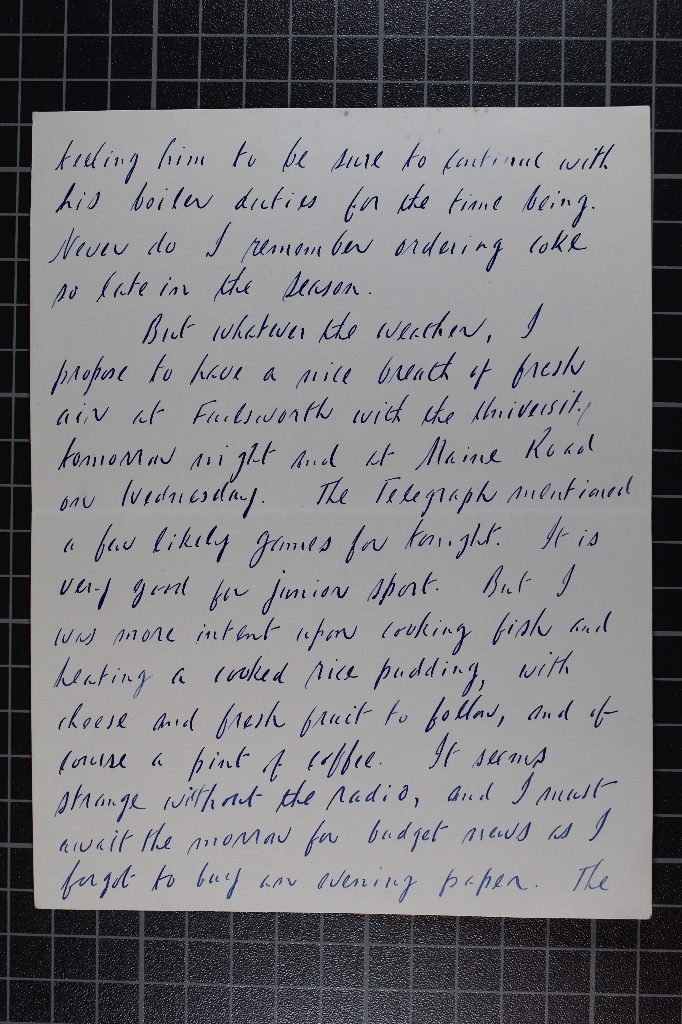 telling him to be sure to continue with
his boiler duties for the time being.
Never do I remember ordering coke
so late in the season.
But whatever the weather, I
propose to have a nice breath of fresh
air at Failsworth with the University
tomorrow night and at Maine Road
on Wednesday. The Telegraph mentioned
a few likely games for tonight. It is
very good for junior sport. But I
was more intent upon cooking fish and
heating a cooked rice pudding, with
cheese and fresh fruit to follow, and of
course a pint of coffee. It seems
strange without the radio, and I must
await the morrow for budget news as I
forgot to buy an evening paper. The